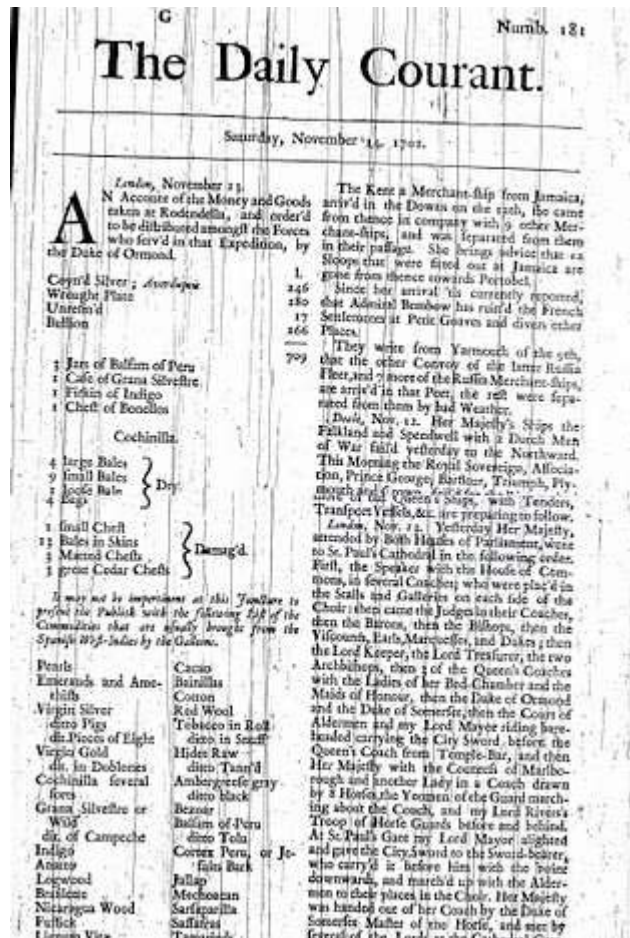 G
Numb. 181
The Daily Courant.
Saturday, November 14. 1702.
London, November 13.
AN Account of the Money and Goods
taken at Rodendella, and order'd
to be distributed amongst the Forces
who serv'd in that Expedition, by
the Duke of Ormond.
l.
Coyn'd Silver; Averdupois 246
Wrought Plate 280
Unrefin'd 17
Bullion 266
709
3 Jars of Balsam of Peru
1 Case of Grana Silvestre
1 Firkin of Indigo
1 Chest of Bonellos
Cochinilla.
4 large Bales
9 small Bales
1 loose Baln
4 Bags
Dry.
1 small Chest
13 Bales in Skins
3 Matted Chests
3 great Cedar Chests
Damag'd.
It may not be impertinent at this Juncture to
present the Publick with the following List of the
Commodities that are usually brought from the
Spanish West-Indies by the Galeons.
Pearls
Emerauds and Ame-
thists
Virgin Silver
ditto Pigs
dit. Pieces of Eight
Virgin Gold
dit. in Dobleries
Cochinilla several
sorts
Grana Silvestre or
Wild
dit. of Campeche
Indigo
Logwood
Nicaragua Wood
Fustick
Cacao
Bainillas
Cotton
Red Wool
Tobacco in Roll
ditto in Snuff
Hides Raw
ditto Tann'd
Ambergreese gray
ditto black
Bezoar
Balsam of Peru
ditto Tolu
Cortex Peru, or Je-
suits Bark
Jallap
Mechoacan
Sarsaparilla
Sassafras
The Kent a Merchant-ship from Jamaica,
arriv'd in the Downs on the 12th, she came
from thence in company with 9 other Mer-
chant-ships, and was separated from them
in their passage. She brings advice that 12
Sloops that were fitted out at Jamaica are
gone from thence towards Portobel.
Since her arrival 'tis currently reported,
that Admiral Bembow has ruin'd the French
Settlements at Petit Goaves and divers other
Places.
They write from Yarmouth of the 9th,
that the other Convoy of the latter Russia
Fleet, and 7 more of the Russia Merchant-ships,
are arriv'd in that Port, the rest were sepa-
rated from them by bad Weather.
Deale, Nov. 12. Her Majesty's Ships the
Falkland and Speedwell with 2 Dutch Men
of War sail'd yesterday to the Northward.
This Morning the Royal Sovereign, Associa-
tion, Prince George, Barfleur, Triumph, Ply-
mouth and
more of the Queen's Ships, with Tenders,
Transport Vessels, &c. are preparing to follow.
London, Nov. 12. Yesterday Her Majesty,
attended by Both Houses of Parliament, were
to St. Paul's Cathedral in the following order.
First, the Speaker with the House of Com-
mons, in several Coaches; who were plac'd in
the Stalls and Galleries on each side of the
Choir: then came the Judges in their Coaches,
then the Barons, then the Bishops, then the
Viscounts, Earls, Marquesses, and Dukes; then
the Lord Keeper, the Lord Treasurer, the two
Archbishops, then 3 of the Queen's Coaches
with the Ladies of her Bed-Chamber and the
Maids of Honour, then the Duke of Ormond
and the Duke of Somerset, then the Court of
Aldermen and my Lord Mayor riding bare-
headed carrying the City Sword before the
Queen's Coach from Temple-Bar, and then
Her Majesty with the Countess of Marlbo-
rough and another Lady in a Coach drawn
by 8 Horses, the Yeomen of the Guard march-
ing about the Coach, and my Lord Rivers's
Troop of Horse Guards before and behind.
At St. Paul's Gate my Lord Mayor alighted
and gave the City Sword to the Sword-bearer,
who carry'd it before him with the point
downwards, and march'd up with the Alder-
men to their places in the Choir. Her Majesty
was handed out of her Coach by the Duke of
Somerset Master of the Horse, and met by